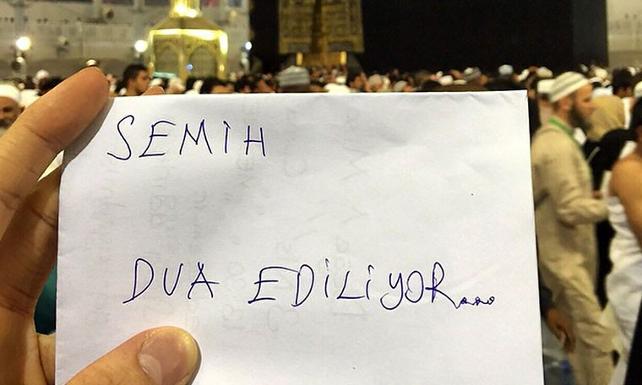 SEMİH
DUA EDİLİYOR....